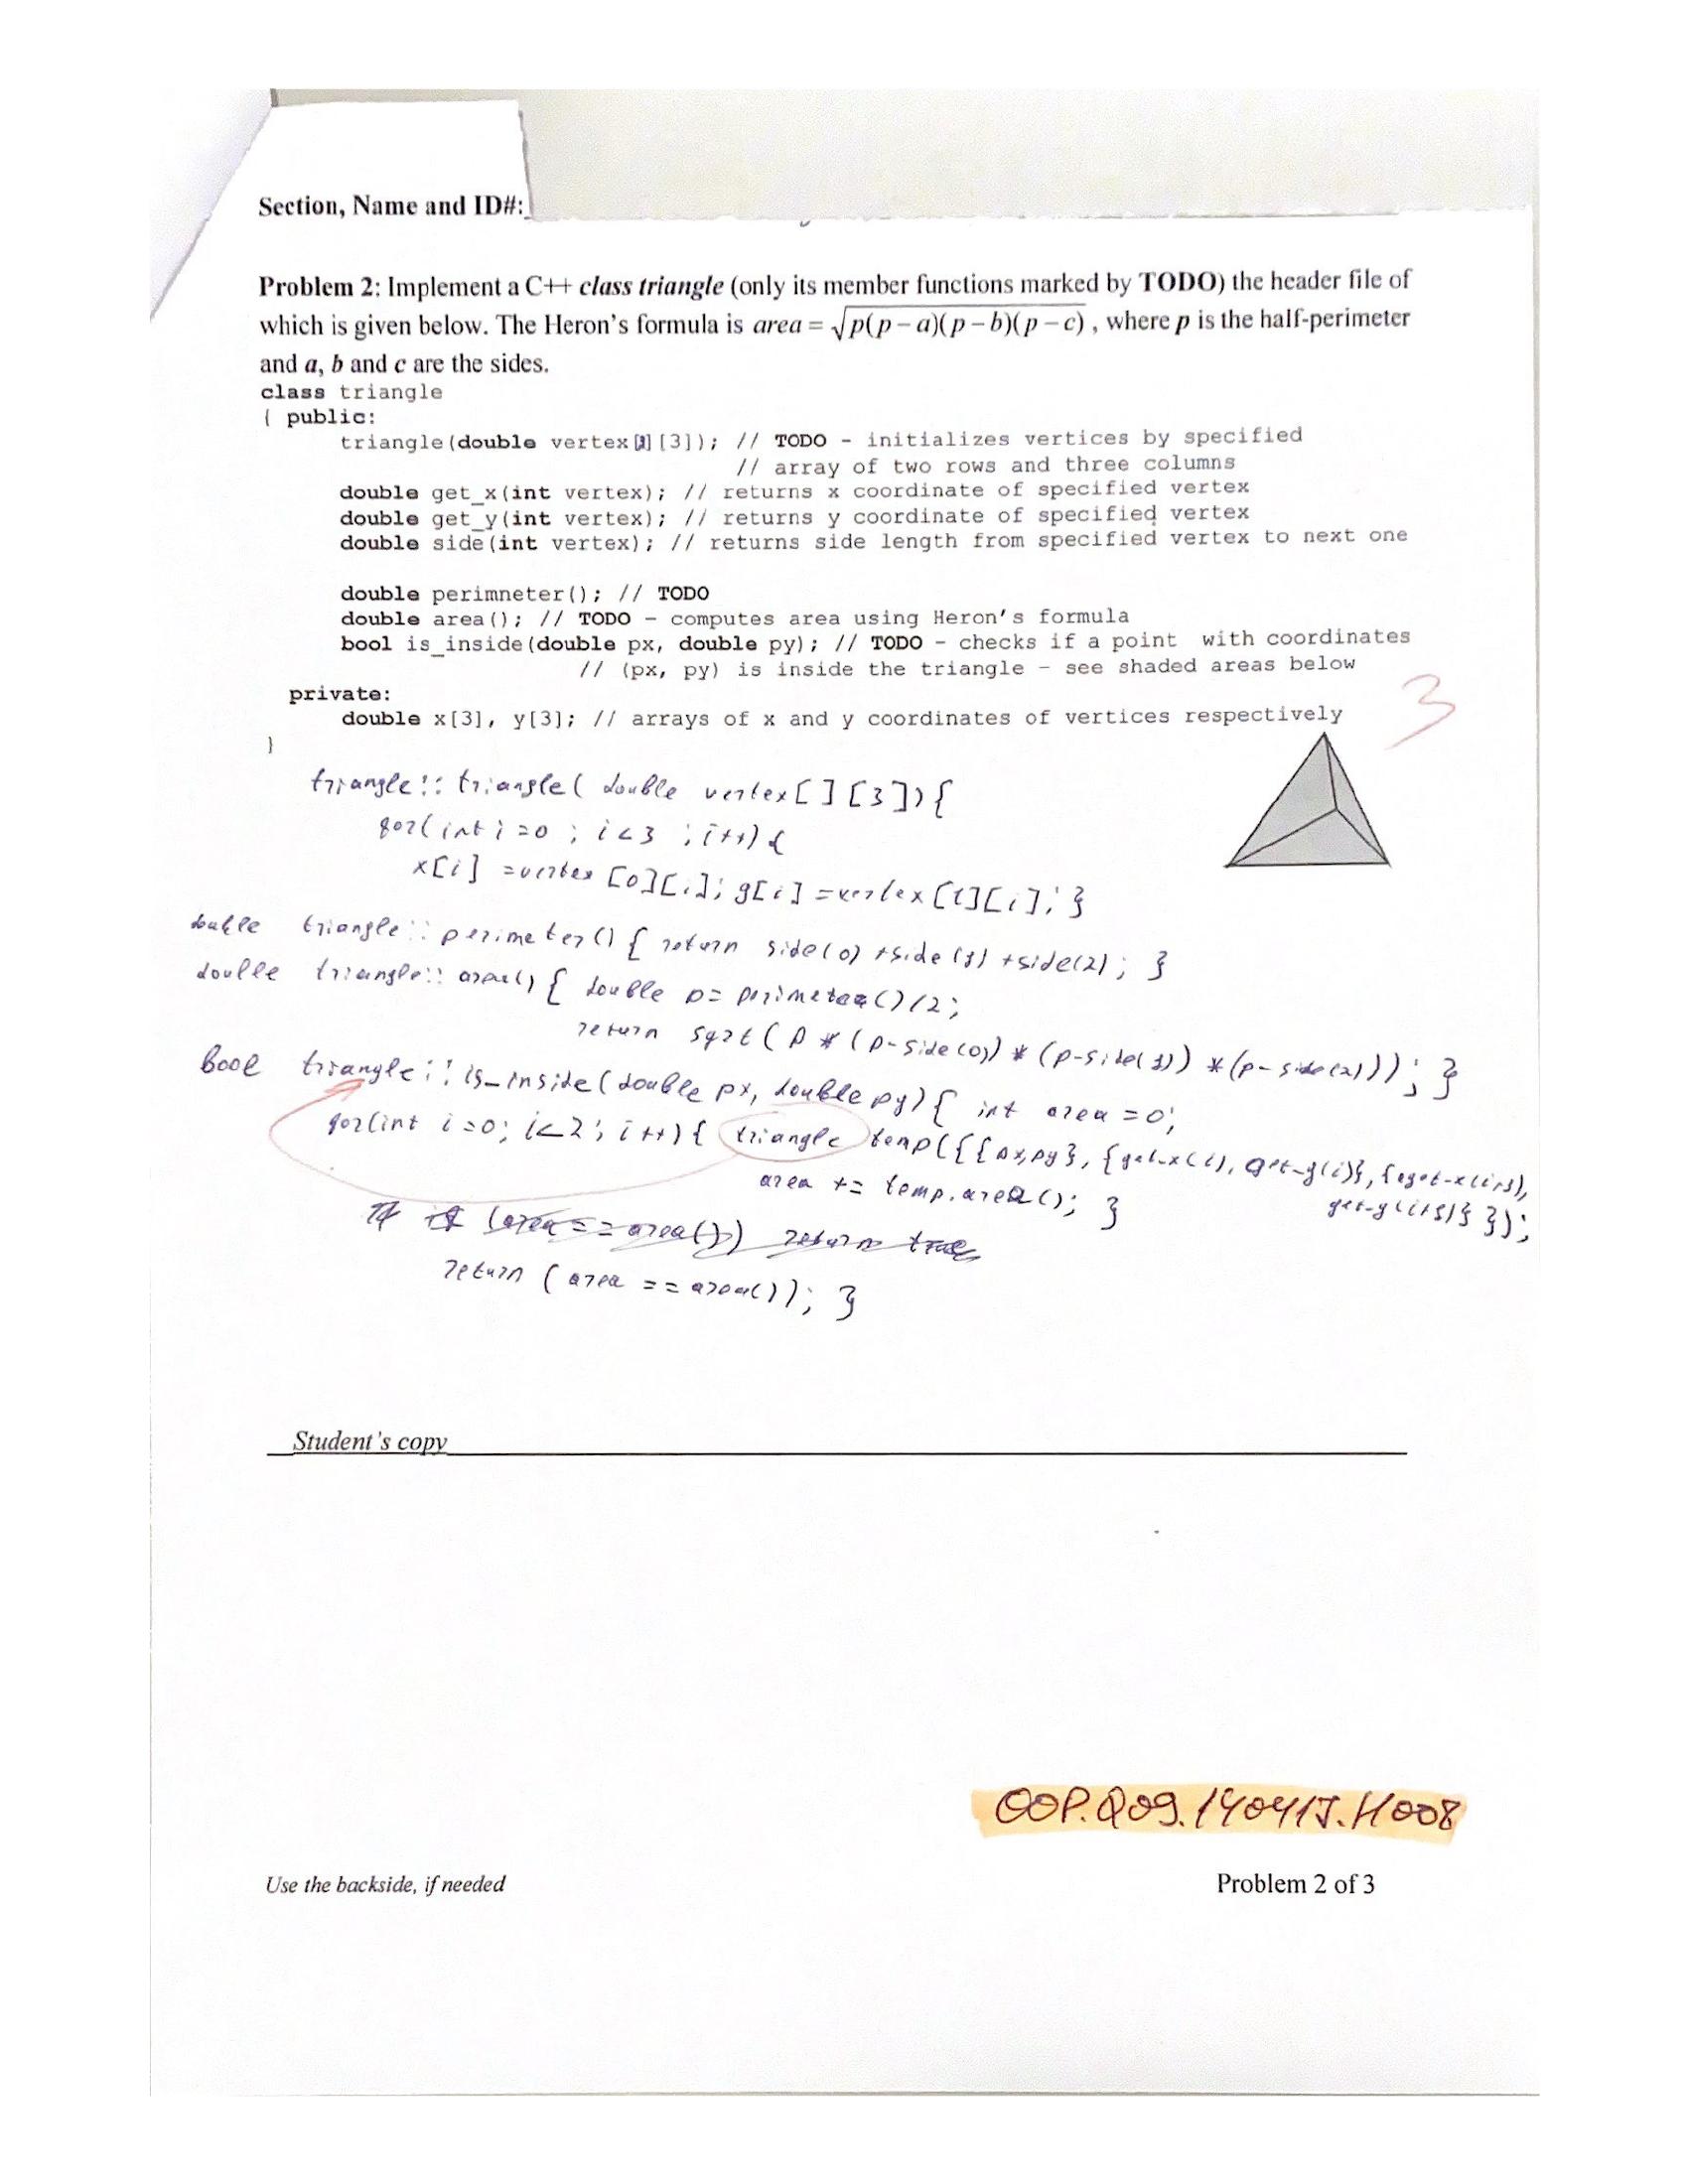 Section, Name and ID#:
Problem 2: Implement a C++ class triangle (only its member functions marked by TODO) the header file of
which is given below. The Heron's formula is area = √p(p − a)(p − b)(p − c) , where p is the half-perimeter
and a, b and c are the sides.
class triangle
{ public:
triangle(double vertex[][3]); // TODO - initializes vertices by specified
// array of two rows and three columns
double get_x(int vertex); // returns x coordinate of specified vertex
double get_y(int vertex); // returns y coordinate of specified vertex
double side(int vertex); // returns side length from specified vertex to next one
double perimneter(); // TODO
double area(); // TODO - computes area using Heron's formula
bool is_inside(double px, double py); // TODO - checks if a point with coordinates
// (px, py) is inside the triangle - see shaded areas below
private:
3
double x[3], y[3]; // arrays of x and y coordinates of vertices respectively
}
triangle::triangle( double vertex[][3]){
for(int i=0 ; i<3 ; i++){
x[i] = vertex [0][i]; y[i] = vertex[1][i]; }
double triangle::perimeter() { return side(0) + side(1) + side(2); }
double triangle::area() { double p = perimeter()/2;
return sqrt( p * (p-side(0)) * (p-side(1)) * (p-side(2))); }
bool triangle::is_inside(double px, double py) { int area = 0;
for(int i=0; i<2; i++){ triangle temp({{px,py}, {get_x(i), get_y(i)}, {get_x(i+1),
get_y(i+1)} });
area += temp.area(); }
if (area == area()) return true
return (area == area()); }
Student's copy
OOP.Q09.190417.H008
Use the backside, if needed
Problem 2 of 3